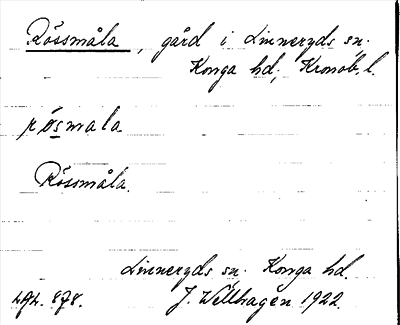 Rössmåla, gård i Linneryds sn.
Konga hd, Kronob. l.
rösmala
Rössmåla.
Linneryds sn. Konga hd.
292. 878. J. Wellhagen 1922.